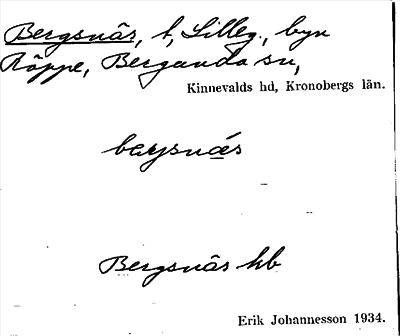 Bergsnäs, t, Lilleg., byn
Räppe, Bergunda sn,
Kinnevalds hd, Kronobergs län.
bærjsnæ̀s
Bergsnäs hb
Erik Johannesson 1934.